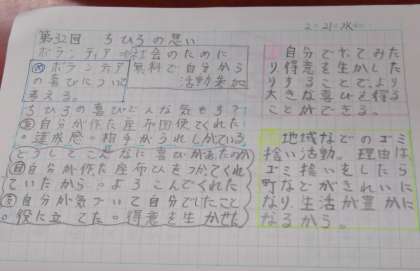 第32回 ちひろの思い
ボランティア→社会のために
無料で自分から
活動参加
めボランティア
の喜びについて
考える。
ちひろの喜びどんな気もち?
自分が作た座布団使てくれた
達成感。相手がうれしがている
どうしてこんなに喜びがあるのか
自分が作た座布団ひをつかてくれ
ていたから。よろこんでくれた
自分が気づいて自分でしたこと
役に立てた。得意を生かせた
自分でやてみた
り得意を生かした
りすることで、より
大きな喜びを得る
ことができる。
地域などのゴミ
拾い活動。理由は
ゴミ拾いをしたら
町などがきれいに
なり生活が豊かに
なるから。